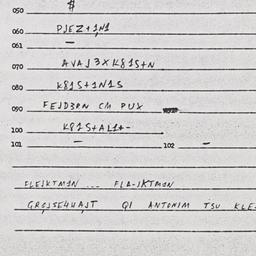 050 #
060 PJEZ+1N1
061 —
070 AVAJ3XK81S+N
080 K81S+1N1S
090 FEJD3RN CM PUX
100 K81S+AL1+-
101 — 102 —
FLEJKTM1N ... FLA-JKTM1N
GROJSE4HAJT QI ANTONIM TSU KLE